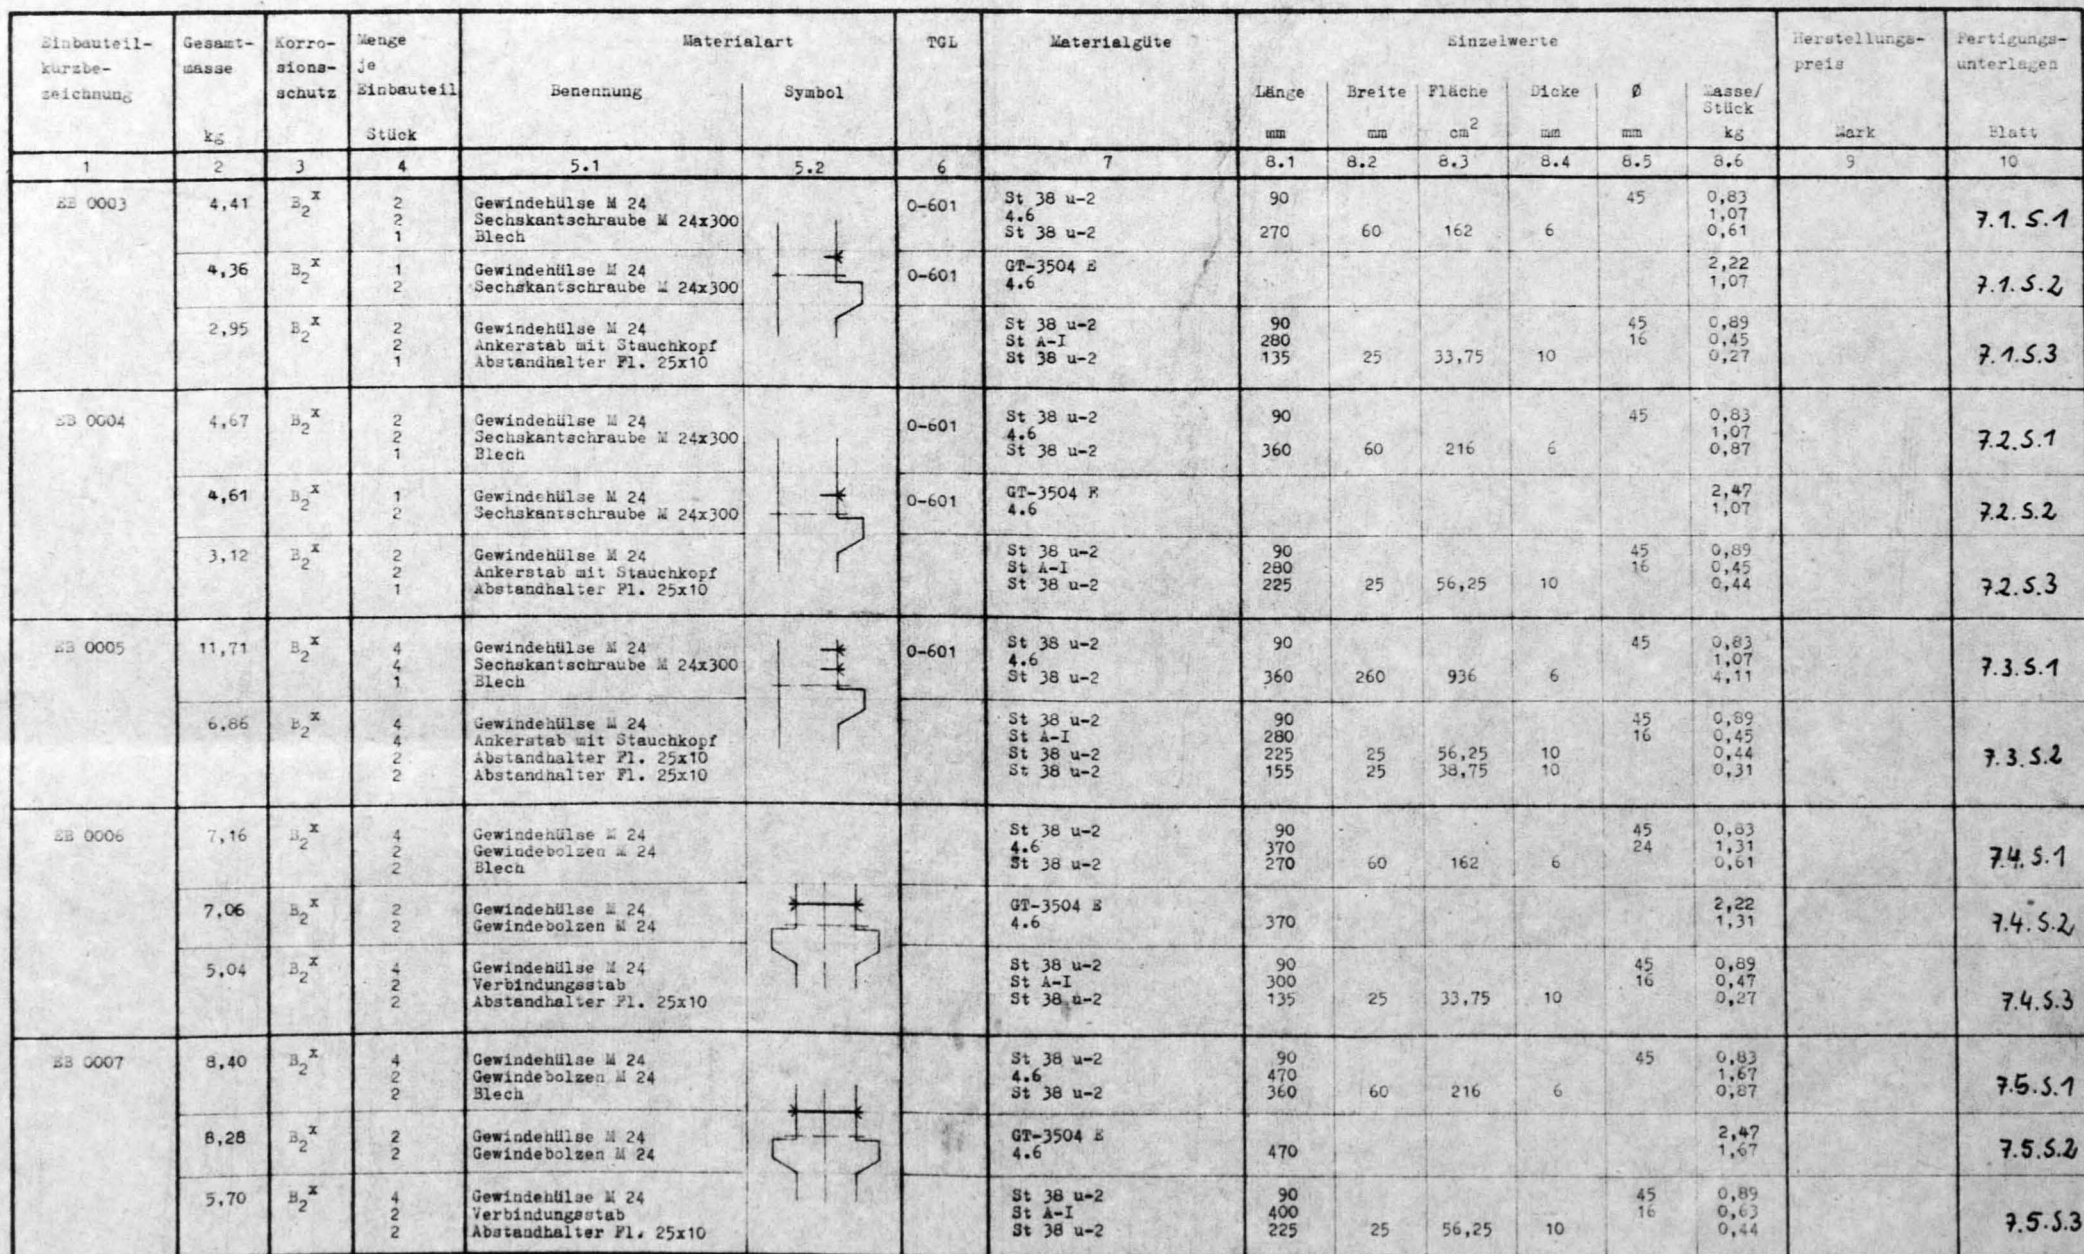 Einbauteil- Gesamt- Korro- Menge Materialart TGL Materialgüte Einzelwerte Herstellungs- Fertigungs-
kurzbe- masse sions- je preis unterlagen
zeichnung schutz Einbauteil Benennung Symbol Länge Breite Fläche Dicke Ø Masse/
Stück
kg Stück mm mm cm² mm mm kg Mark Blatt
1 2 3 4 5.1 5.2 6 7 8.1 8.2 8.3 8.4 8.5 8.6 9 10
EB 0003 4,41 B₂ˣ 2 Gewindehülse M 24 0-601 St 38 u-2 90 45 0,83
2 Sechskantschraube M 24x300 4.6 1,07 7.1.S.1
1 Blech St 38 u-2 270 60 162 6 0,61
4,36 B₂ˣ 1 Gewindehülse M 24 0-601 GT-3504 E 2,22
2 Sechskantschraube M 24x300 4.6 1,07 7.1.S.2
2,95 B₂ˣ 2 Gewindehülse M 24 St 38 u-2 90 45 0,89
2 Ankerstab mit Stauchkopf St A-I 280 16 0,45
1 Abstandhalter Fl. 25x10 St 38 u-2 135 25 33,75 10 0,27 7.1.S.3
EB 0004 4,67 B₂ˣ 2 Gewindehülse M 24 0-601 St 38 u-2 90 45 0,83
2 Sechskantschraube M 24x300 4.6 1,07 7.2.S.1
1 Blech St 38 u-2 360 60 216 6 0,87
4,61 B₂ˣ 1 Gewindehülse M 24 0-601 GT-3504 E 2,47
2 Sechskantschraube M 24x300 4.6 1,07 7.2.S.2
3,12 B₂ˣ 2 Gewindehülse M 24 St 38 u-2 90 45 0,89
2 Ankerstab mit Stauchkopf St A-I 280 16 0,45
1 Abstandhalter Fl. 25x10 St 38 u-2 225 25 56,25 10 0,44 7.2.S.3
EB 0005 11,71 B₂ˣ 4 Gewindehülse M 24 0-601 St 38 u-2 90 45 0,83
4 Sechskantschraube M 24x300 4.6 1,07 7.3.S.1
1 Blech St 38 u-2 360 260 936 6 4,11
6,86 B₂ˣ 4 Gewindehülse M 24 St 38 u-2 90 45 0,89
4 Ankerstab mit Stauchkopf St A-I 280 16 0,45
2 Abstandhalter Fl. 25x10 St 38 u-2 225 25 56,25 10 0,44 7.3.S.2
2 Abstandhalter Fl. 25x10 St 38 u-2 155 25 38,75 10 0,31
EB 0006 7,16 B₂ˣ 4 Gewindehülse M 24 St 38 u-2 90 45 0,83
2 Gewindebolzen M 24 4.6 370 24 1,31 7.4.S.1
2 Blech St 38 u-2 270 60 162 6 0,61
7,06 B₂ˣ 2 Gewindehülse M 24 GT-3504 E 2,22
2 Gewindebolzen M 24 4.6 370 1,31 7.4.S.2
5,04 B₂ˣ 4 Gewindehülse M 24 St 38 u-2 90 45 0,89
2 Verbindungsstab St A-I 300 16 0,47
2 Abstandhalter Fl. 25x10 St 38 u-2 135 25 33,75 10 0,27 7.4.S.3
EB 0007 8,40 B₂ˣ 4 Gewindehülse M 24 St 38 u-2 90 45 0,83
2 Gewindebolzen M 24 4.6 470 1,67
2 Blech St 38 u-2 360 60 216 6 0,87 7.5.S.1
8,28 B₂ˣ 2 Gewindehülse M 24 GT-3504 E 2,47
2 Gewindebolzen M 24 4.6 470 1,67 7.5.S.2
5,70 B₂ˣ 4 Gewindehülse M 24 St 38 u-2 90 45 0,89
2 Verbindungsstab St A-I 400 16 0,63
2 Abstandhalter Fl. 25x10 St 38 u-2 225 25 56,25 10 0,44 7.5.S.3